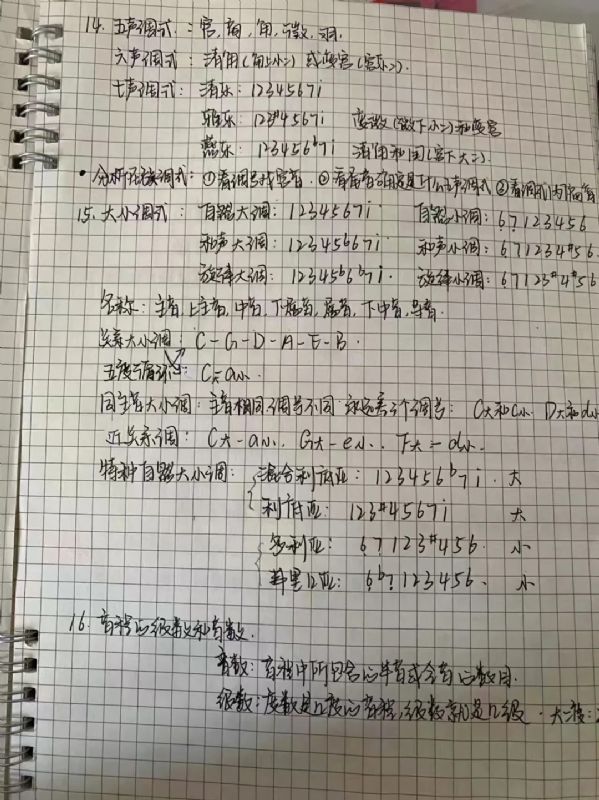 14. 五声调式：宫, 商, 角, 徵, 羽.
六声调式：清角(角上小二) 或变宫(宫下小二).
七声调式：清乐：1234567i
雅乐：123#4567i 变徵(徵下小二)和变宫
燕乐：123456b7i 清角和闰(宫下大二).
·分析民族调式：①看调号找宫音. ②看尾音确定是什么五声调式 ③看调式内偏音
15. 大小调式：自然大调：1234567i 自然小调：67123456
和声大调：12345b67i 和声小调：671234#56
旋律大调：12345b6b7i. 旋律小调：67123#4#56
名称：主音, 上主音, 中音, 下属音, 属音, 下中音, 导音.
关系大小调：C-G-D-A-E-B.
五度循环：C大a小.
同主音大小调：主音相同调号不同 永远差3个调号：C大和c小. D大和d小
近关系调：C大-a小. G大-e小. F大-d小.
特种自然大小调：混合利底亚：123456b7i. 大
利底亚：123#4567i 大
多利亚：67123#456. 小
弗里几亚：6b7123456. 小
16. 音程的级数和音数.
音数：音程中所包含的半音或全音的数目.
级数：度数是几度的音程, 级数就是几级. 大二度：